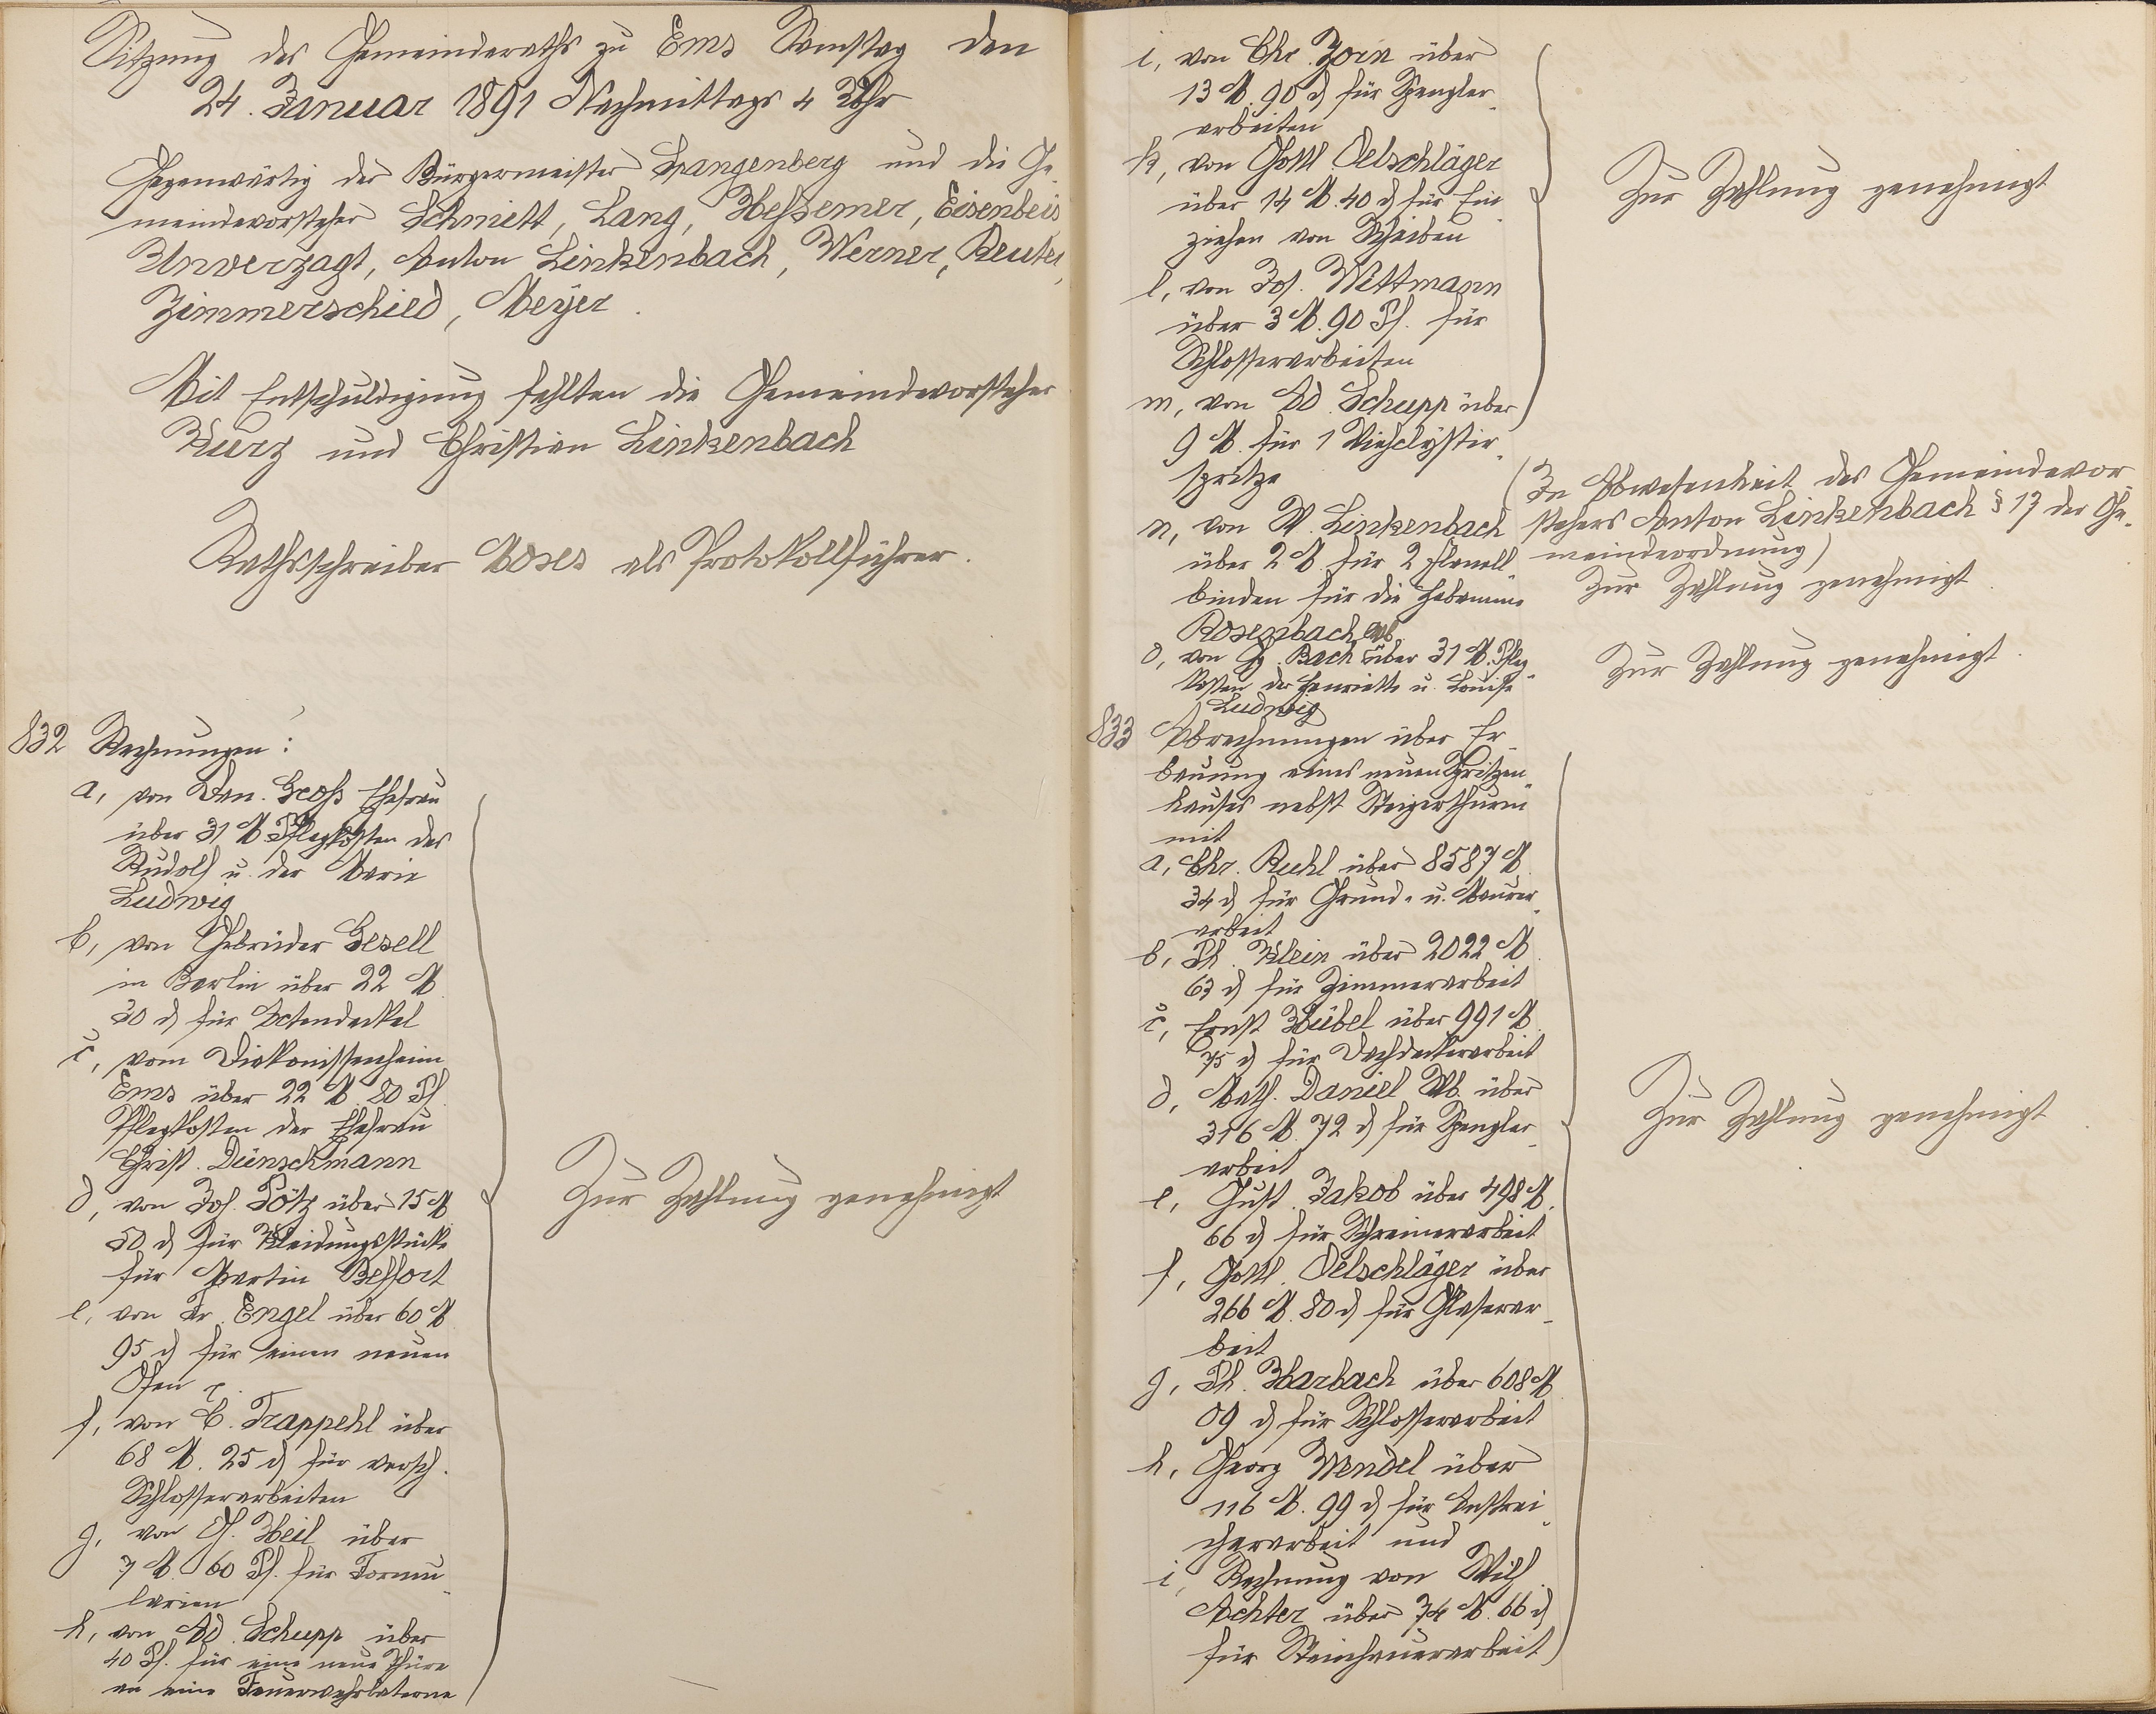 Sitzung des Gemeinderaths zu Ems Samstag den
24. Januar 1891 Nachmittags 4 Uhr
Gegenwärtig der Bürgermeister Spangenberg und die Ge-
meindevorsteher Schmitt, Lang, Hessemer, Eisenbeis
Unverzagt, Anton Linkenbach, Werner, Reuter,
Zimmerschied, Meyer.
Mit Entschuldigung fehlten die Gemeindevorsteher
Kurz und Christian Linkenbach
Rathsschreiber Moses als Protokollführer.
832 Rechnungen:
a, von Dan. Groß Ehefrau
über 31 M Pflegkosten des
Rudolf u. der Marie
Ludwig
b, von Gebrüder Gesell
in Berlin über 22 M
30 d für Actendeckel
c, vom Diakonissenheim
Ems über 22 M. 80 Pf.
Pflegkosten der Ehefrau
Christ. Dünschmann
d, von Jos. Pötz über 15 M
50 d für Kleidungsstücke
für Martin Belfort
e, von Fr. Engel über 60 M
95 d für einen neuen
Ofen c.
f, von C. Trappehl über
68 M. 25 d für versch.
Schlosserarbeiten
g, von H. Heil über
7 M. 60 Pf. für Formu-
larien
h, von Ad. Schupp über
40 Pf. für eine neue Thüre
an eine Feuerwehrlaterne
Zur Zahlung genehmigt
i, von Chr. Zorn über
13 M. 90 d für Spengler-
arbeiten
k, von Gottl. Oelschläger
über 14 M. 40 d für Ein-
ziehen von Scheiben
l, von Jos. Wittmann
über 3 M. 90 Pf. für
Schlosserarbeiten
m, von Ad. Schupp über
9 M. für 1 Viehclystir-
spritze
Zur Zahlung genehmigt
n, von W. Linkenbach
über 2 M für 2 Flanell-
binden für die Hebamme
Rosenbach Wb.
(In Abwesenheit des Gemeindevor-
stehers Anton Linkenbach § 17 der Ge-
meindeordnung)
Zur Zahlung genehmigt.
o, von Hg. Bach über 31 M. Pfleg-
kosten der Henriette u. Louise
Ludwig
Zur Zahlung genehmigt.
833 Abrechnungen über Er-
bauung eines neuen Spritzen-
hauses nebst Steigerthurm
mit
a, Chr. Ruhl über 8587 M.
34 d für Grund- u. Maurer-
arbeit
b, Ph. Klein über 2022 M.
63 d für Zimmerarbeit
c, Ernst Hübel über 991 M.
75 d für Dachdeckerarbeit
d, Math. Daniel Wb. über
316 M. 72 d für Spengler-
arbeit
e, Gust. Jakob über 498 M.
66 d für Schreinerarbeit
f, Gottl. Oelschläger über
266 M. 80 d für Glaserar-
beit
g, Ph. Harbach über 608 M
09 d für Schlosserarbeit
h, Georg Wendel über
116 M. 99 d für Anstrei-
cherarbeit und
i, Rechnung von Wilh.
Achter über 74 M. 66 d
für Steinhauerarbeit
Zur Zahlung genehmigt